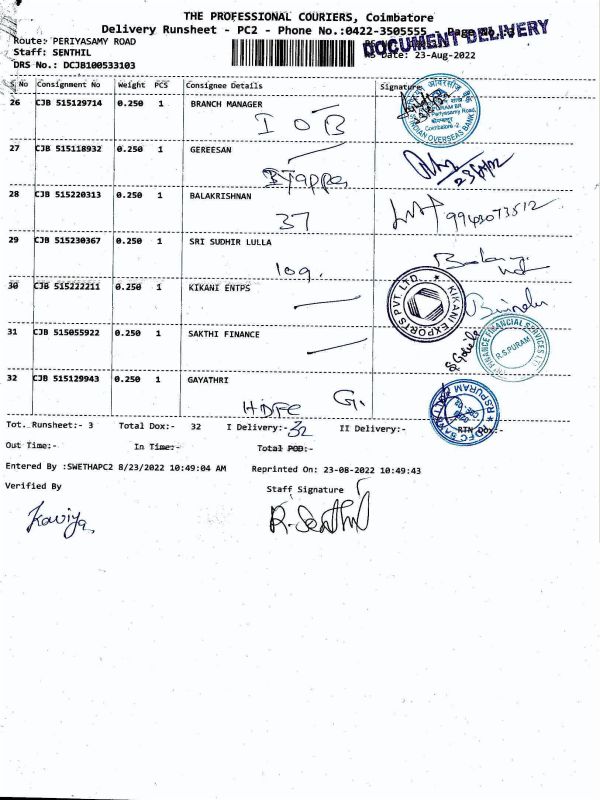 THE PROFESSIONAL COURIERS, Coimbatore
Delivery Runsheet - PC2 - Phone No.:0422-3505555 - Page No.:3
DOCUMENT DELIVERY
Route: PERIYASAMY ROAD
Staff: SENTHIL
DRS No.: DCJB100533103
Date: 23-Aug-2022
S No Consignment No Weight PCS Consignee Details Signature
26 CJB 515129714 0.250 1 BRANCH MANAGER
IOB
INDIAN OVERSEAS BANK
Coimbatore-2
27 CJB 515118932 0.250 1 GEREESAN
28 CJB 515220313 0.250 1 BALAKRISHNAN
37
9943073512
29 CJB 515230367 0.250 1 SRI SUDHIR LULLA
109.
30 CJB 515222211 0.250 1 KIKANI ENTPS
KIKANI EXPORTS PVT. LTD.
31 CJB 515055922 0.250 1 SAKTHI FINANCE
R.S.PURAM
32 CJB 515129943 0.250 1 GAYATHRI
HDFC G.
Tot. Runsheet:- 3 Total Dox:- 32 I Delivery:- 32 II Delivery:- RTN
Out Time:- In Time:- Total POD:-
Entered By :SWETHAPC2 8/23/2022 10:49:04 AM Reprinted On: 23-08-2022 10:49:43
Verified By Staff Signature
Kaviya R. Senthil